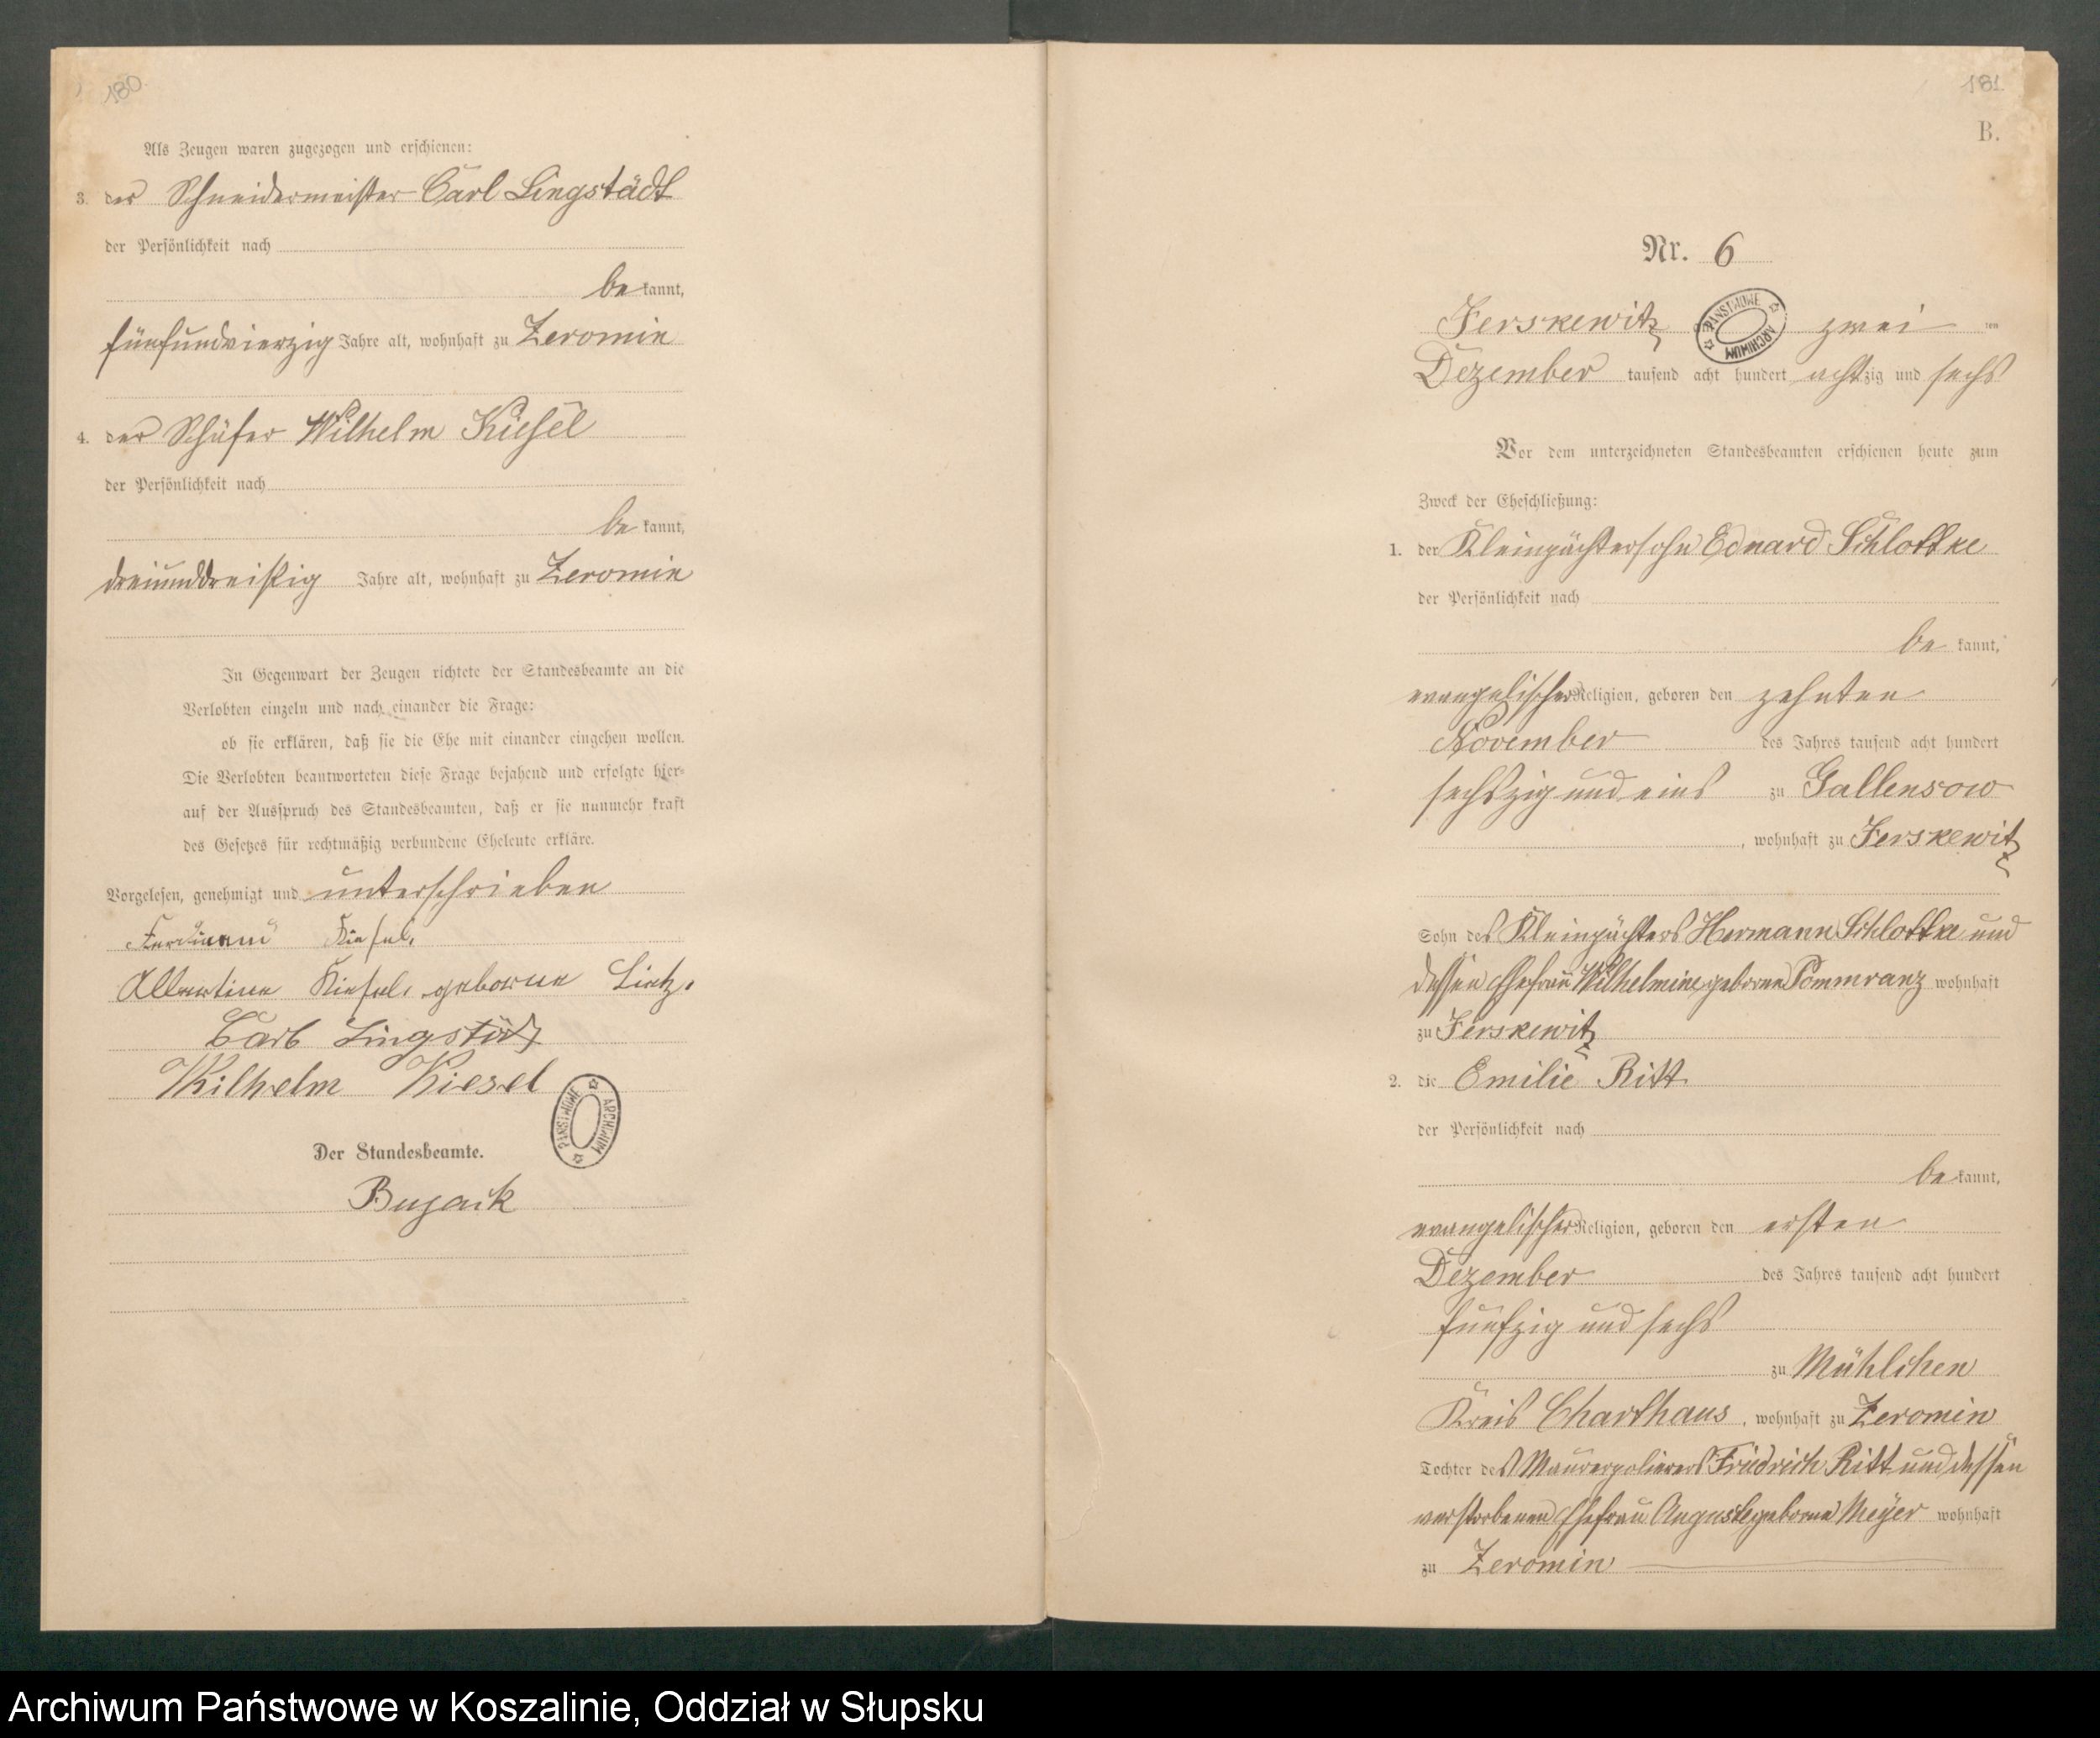 180.
Als Zeugen waren zugezogen und erschienen:
3. der Schneidermeister Carl Lingstädt
der Persönlichkeit nach
be kannt,
fünfundvierzig Jahre alt, wohnhaft zu Zeromin
4. der Schäfer Wilhelm Kiesel
der Persönlichkeit nach
be kannt,
dreiunddreißig Jahre alt, wohnhaft zu Zeromin
In Gegenwart der Zeugen richtete der Standesbeamte an die
Verlobten einzeln und nach einander die Frage:
ob sie erklären, daß sie die Ehe mit einander eingehen wollen.
Die Verlobten beantworteten diese Frage bejahend und erfolgte hier-
auf der Ausspruch des Standesbeamten, daß er sie nunmehr kraft
des Gesetzes für rechtmäßig verbundene Eheleute erkläre.
Vorgelesen, genehmigt und unterschrieben
Ferdinand Kiesel.
Albertine Kiesel. geborne Lietz.
Carl Lingstädt
Wilhelm Kiesel
PAŃSTWOWE ARCHIWUM
Der Standesbeamte.
Bujack
181.
B.
Nr. 6
Jerskewitz zwei ten
PAŃSTWOWE ARCHIWUM
Dezember tausend acht hundert achtzig und sechs
Vor dem unterzeichneten Standesbeamten erschienen heute zum
Zweck der Eheschließung:
1. der Kleinpächtersohn Eduard Schlottke
der Persönlichkeit nach
be kannt,
evangelischer Religion, geboren den zehnten
November des Jahres tausend acht hundert
sechszig und eins zu Gallensow
, wohnhaft zu Jerskewitz
Sohn des Kleinpächters Hermann Schlottke und
dessen Ehefrau Wilhelmine geborene Pommranz wohnhaft
zu Jerskewitz
2. die Emilie Ritt
der Persönlichkeit nach
be kannt,
evangelischer Religion, geboren den ersten
Dezember des Jahres tausend acht hundert
fünfzig und sechs
zu Mühlchen
Kreis Charthaus, wohnhaft zu Zeromin
Tochter des Maurerpolierers Friedrich Ritt und dessen
verstorbenen Ehefrau Auguste geborne Meÿer wohnhaft
zu Zeromin
Archiwum Państwowe w Koszalinie, Oddział w Słupsku